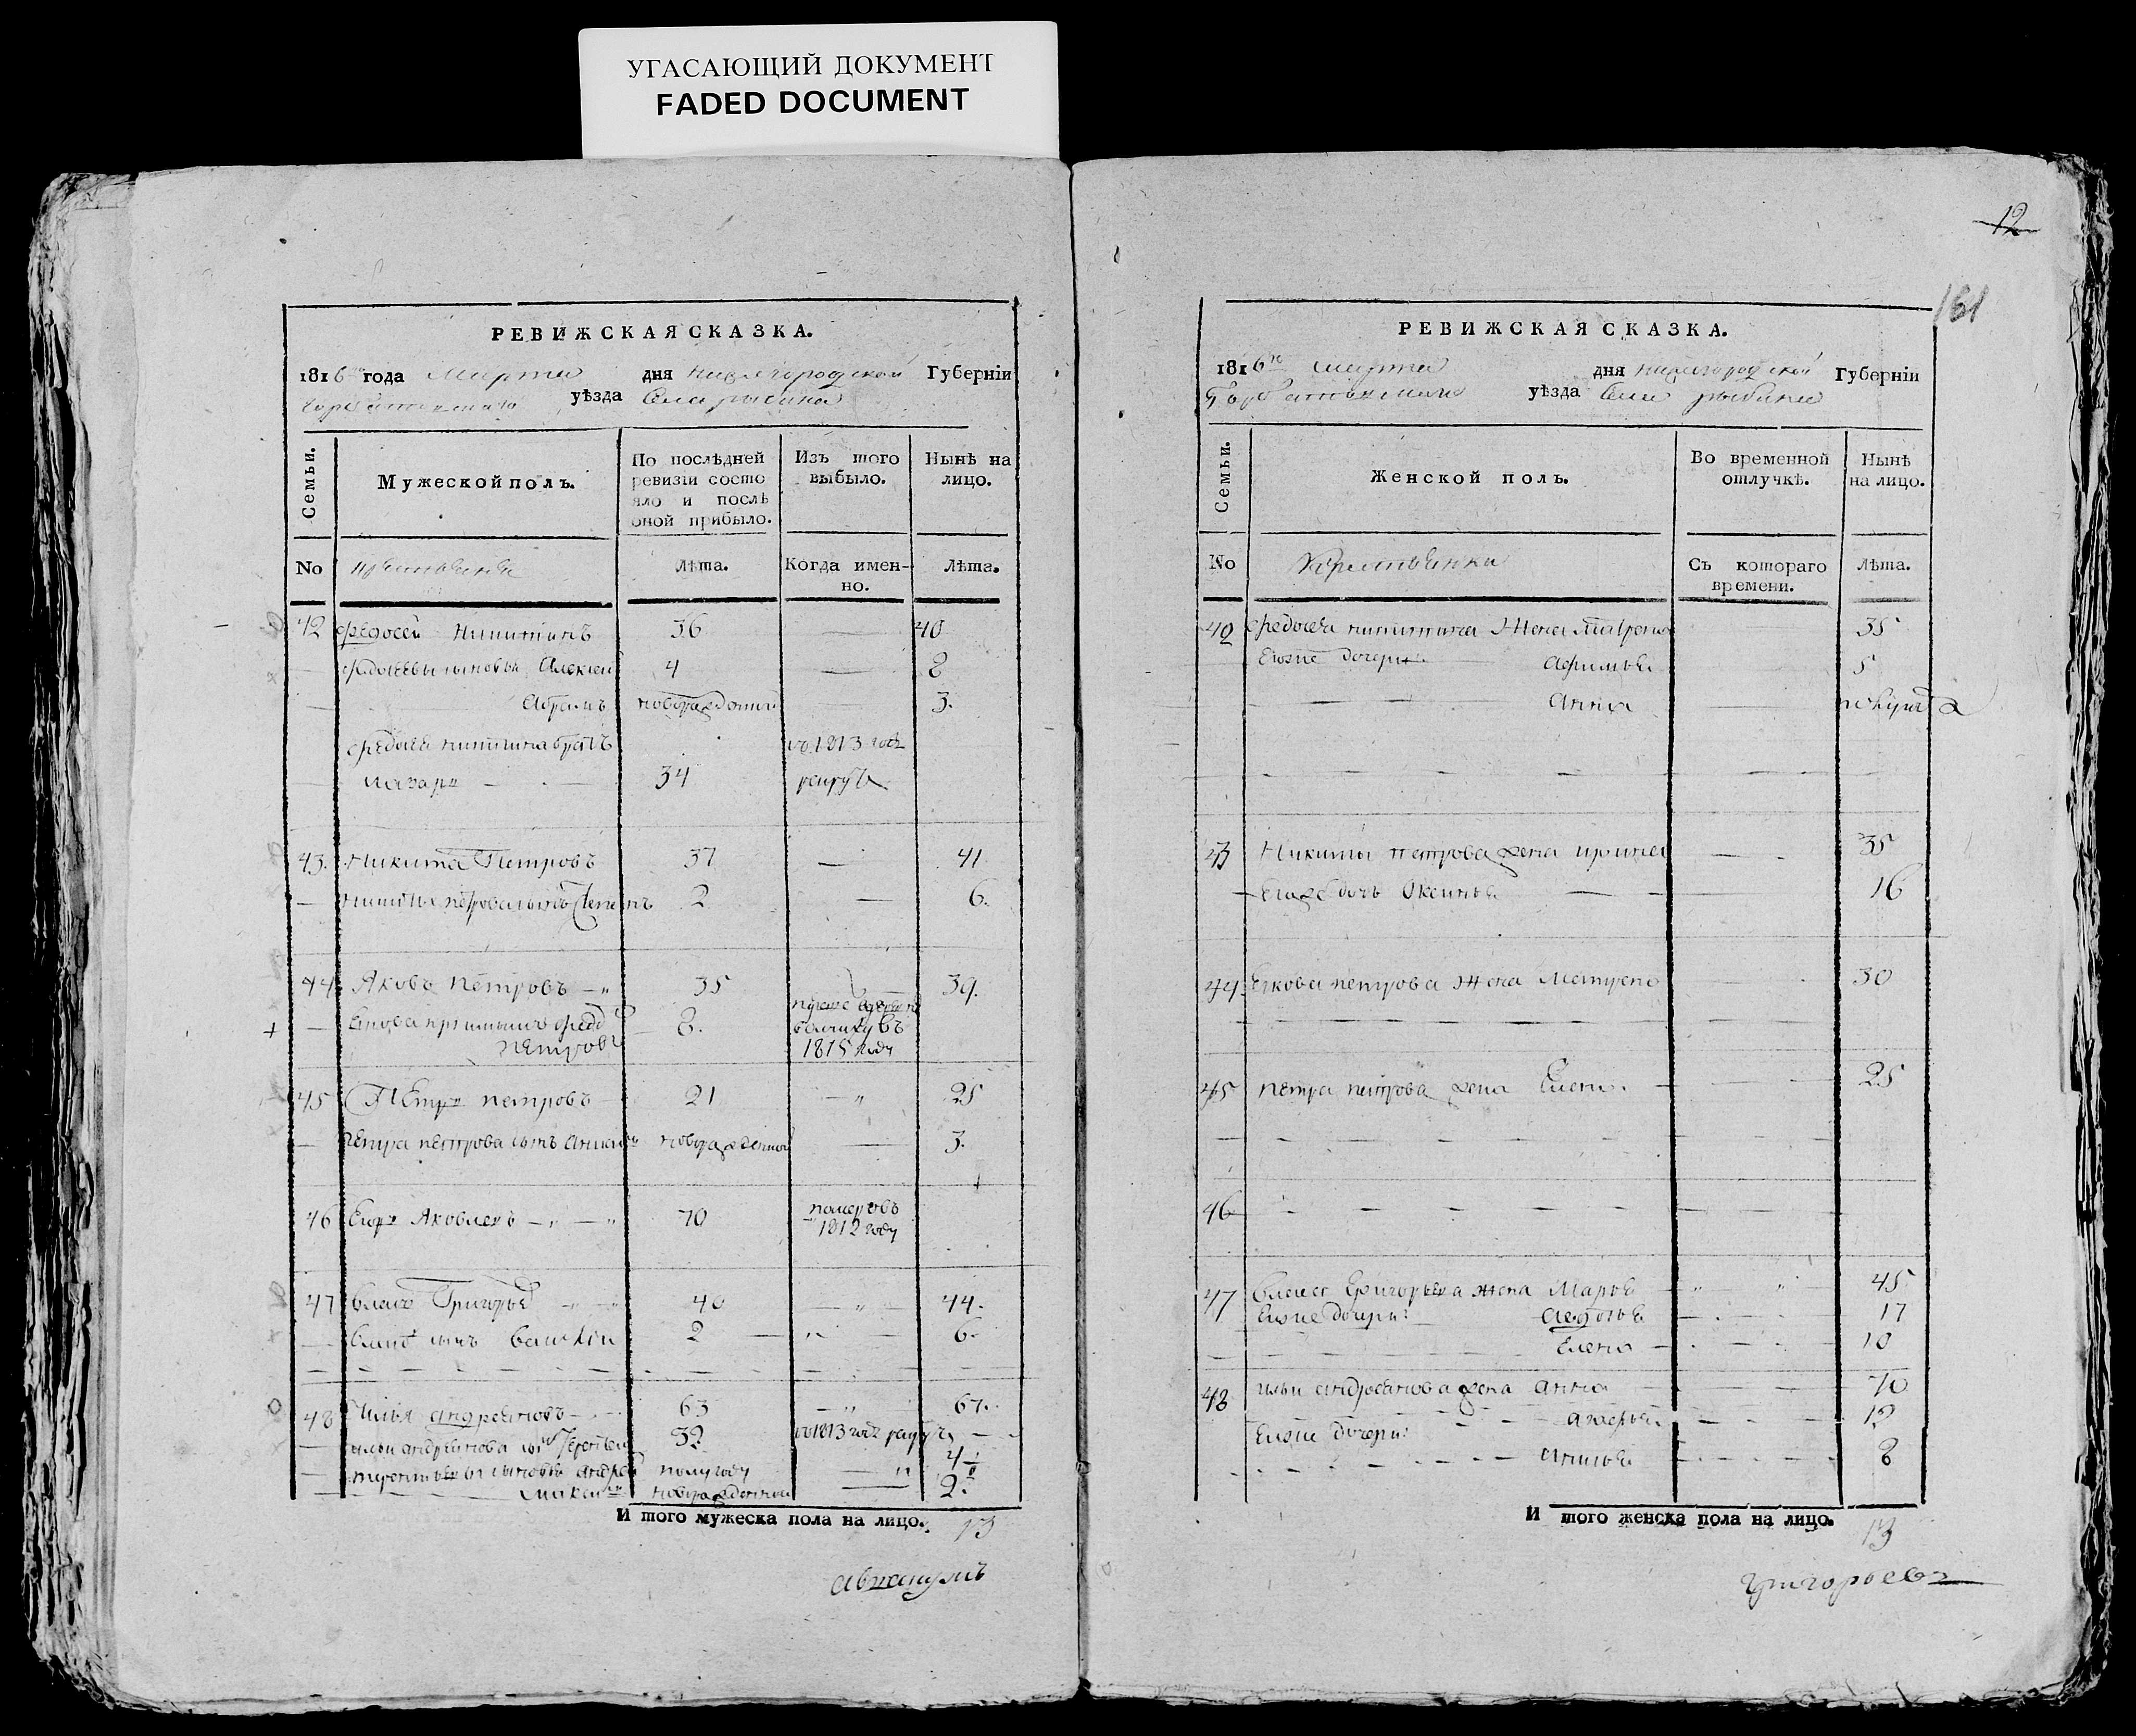 УГАСАЮЩИЙ ДОКУМЕНТ
FADED DOCUMENT
РЕВИЖСКАЯ СКАЗКА.
1816 года Марта дня Нижегородской Губерніи
Горбатовскаго уѣзда Села рыбина
Семьи.
Мужеской полъ.
По послѣдней ревизіи состояло и послѣ оной прибыло.
Изъ того выбыло.
Нынѣ на лицо.
No
Лѣта.
Когда именно.
Лѣта.
42 Федосей Никитинъ 36 — 40
Федосеевы сыновья Алексей 4 — 8
Абрамъ новорожденной — 3.
Федосея никитина братъ въ 1813 годе
лазарь 34 рекрутъ
43. Никита Петровъ 37 — 41
Никиты петрова сынъ Степанъ 2 — 6.
44 Яковъ Петровъ 35 39.
Якова приимышъ Федоръ 8.
Петровъ 1815 году
45 Петръ петровъ 21 25
Петра петрова сынъ новорожденной — 3.
46 Егоръ Яковлевъ 70 померъ въ 1812 году
47 Власъ Григорьевъ 40 44.
Власа сынъ Василий 2 6.
48 Илья андреяновъ 63 67.
Ильи андреянова сынъ Терентей 32 въ 1813 годе рекрутъ
терентьевы сыновья андрей полугоду 4
новорожденной 2.
И того мужеска пола на лицо. 13
авакумъ
12
161
РЕВИЖСКАЯ СКАЗКА.
1816 го марта дня нижегородской Губерніи
Горбатовскаго уѣзда Села рыбина
Семьи.
Женской полъ.
Во временной отлучкѣ.
Нынѣ на лицо.
No
Крестьянки
Съ котораго времени.
Лѣта.
42 Федосея никитина Жена Матрена 35
Ево же дочери Афимья 5
Анна
43 Никиты петрова жена ирина 35
Ево же дочь Оксинья 16
44 Якова петрова Жена Матрена 30
45 петра петрова жена Елена 25
46
47 Власа Григорьева жена Марья 45
Ево же дочери: авдотья 17
Елена 10
48 ильи андреянова жена анна 70
Ево же дочери: 12
анисья 8
И того женска пола на лицо. 13
григорьевъ